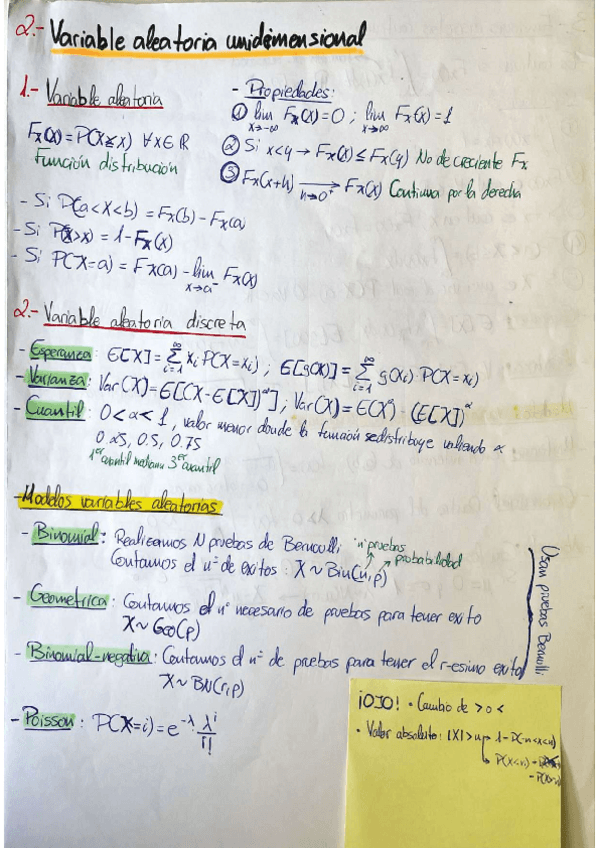 2.- Variable aleatoria unidimensional
1.- Variable aleatoria
Fx(x) = P(X≤x) ∀x∈ℝ
Función distribución
- Propiedades:
① lim x→-∞ Fx(x)=0 ; lim x→∞ Fx(x)=1
② Si x<y → Fx(x) ≤ Fx(y) No decreciente Fx
③ Fx(x+h) → h→0⁺ Fx(x) Continua por la derecha
- Si P(a<X<b) = Fx(b) - Fx(a)
- Si P(X>x) = 1 - Fx(x)
- Si P(X=a) = Fx(a) - lim x→a⁻ Fx(x)
2.- Variable aleatoria discreta
- Esperanza: E[X] = ∑ i=1 ∞ xi P(X=xi) ; E[g(X)] = ∑ i=1 ∞ g(xi)·P(X=xi)
- Varianza: Var(X) = E[(X-E[X])²] ; Var(X) = E(X²) - (E[X])²
- Cuantil: 0<α<1, valor menor donde la función se distribuye valiendo α
0.25, 0.5, 0.75
1er cuantil mediana 3er cuantil
- Modelos variables aleatorias
- Binomial: Realizamos N pruebas de Bernoulli
Contamos el nº de éxitos: X ~ Bin(n,p)
nº pruebas
probabilidad
- Geométrica: Contamos el nº necesario de pruebas para tener éxito
X ~ Geo(p)
- Binomial-negativa: Contamos el nº de pruebas para tener el r-esimo exito
X ~ BN(r,p)
Usan pruebas Bernulli
- Poisson: P(X=i) = e^-λ · λ^i / i!
¡OJO! · Cambio de > o <
· Valor absoluto: |X| > n → 1-P(-n<x<n)